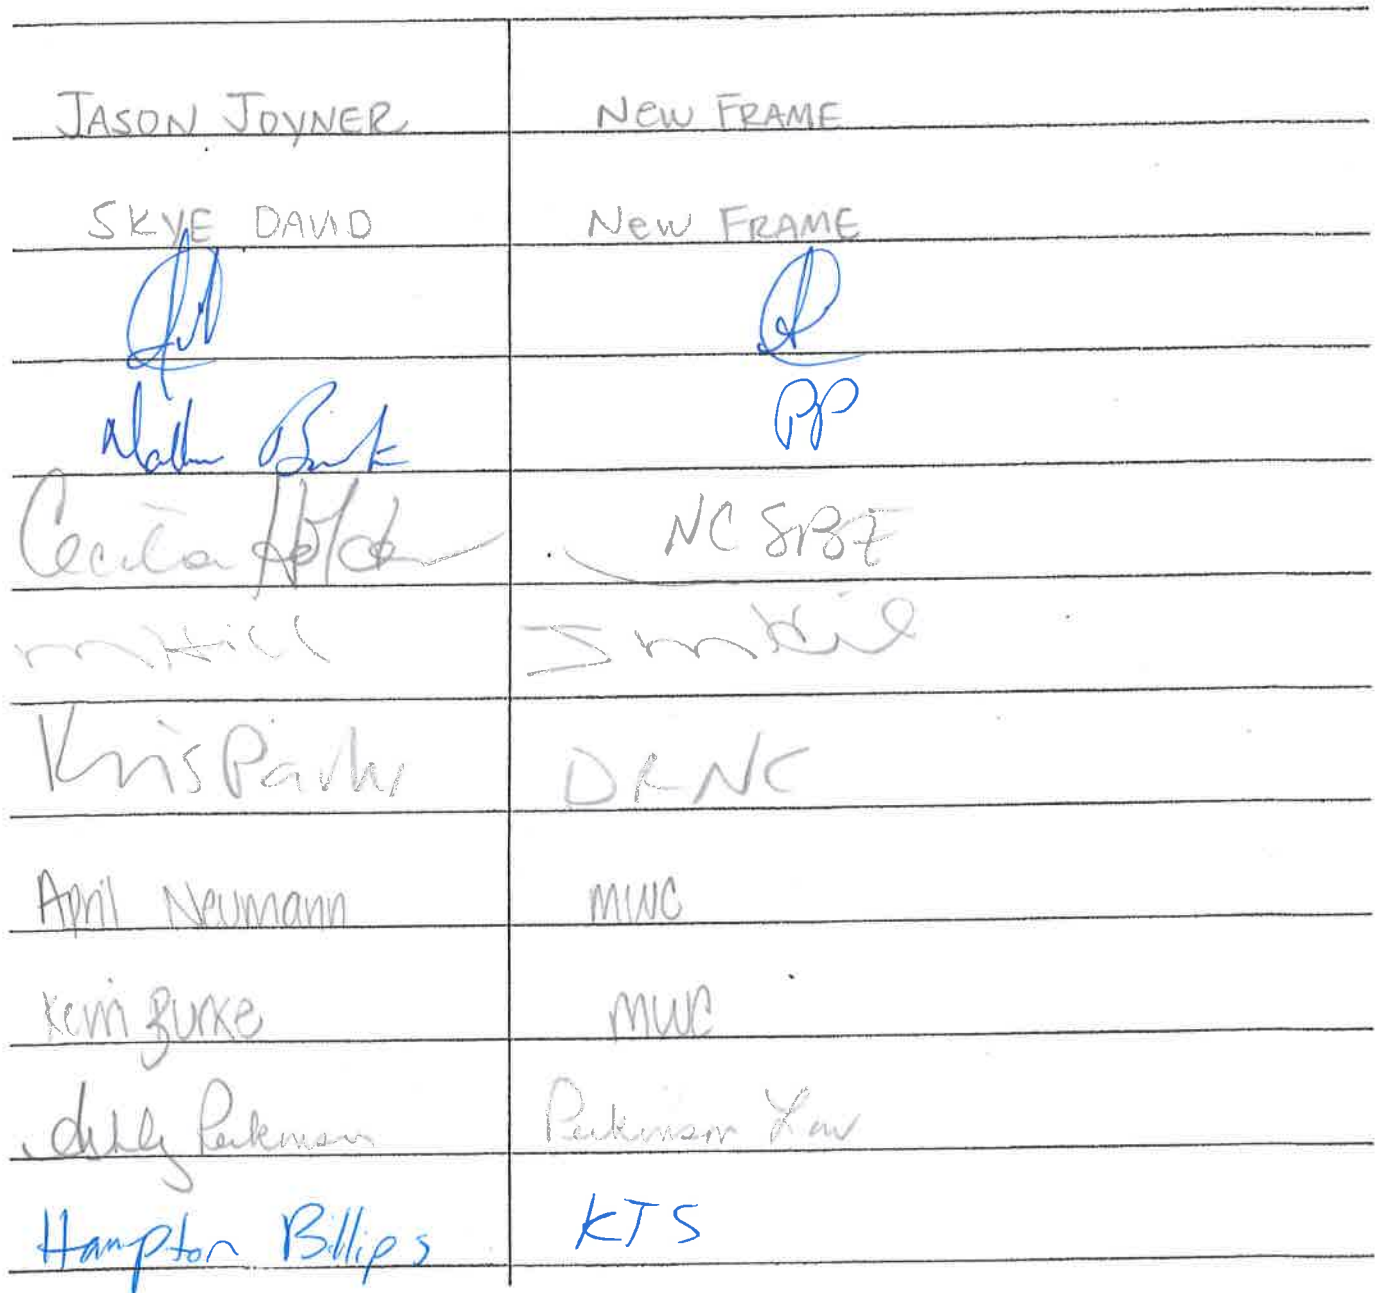 JASON JOYNER NEW FRAME
SKYE DAVID NEW FRAME
PP
Cecilia Holden NC SBE
M Hill
Kris Parks DRNC
April Neumann MWC
Kerri Burke MWC
Perkinson Perkinson Law
Hampton Billips KTS